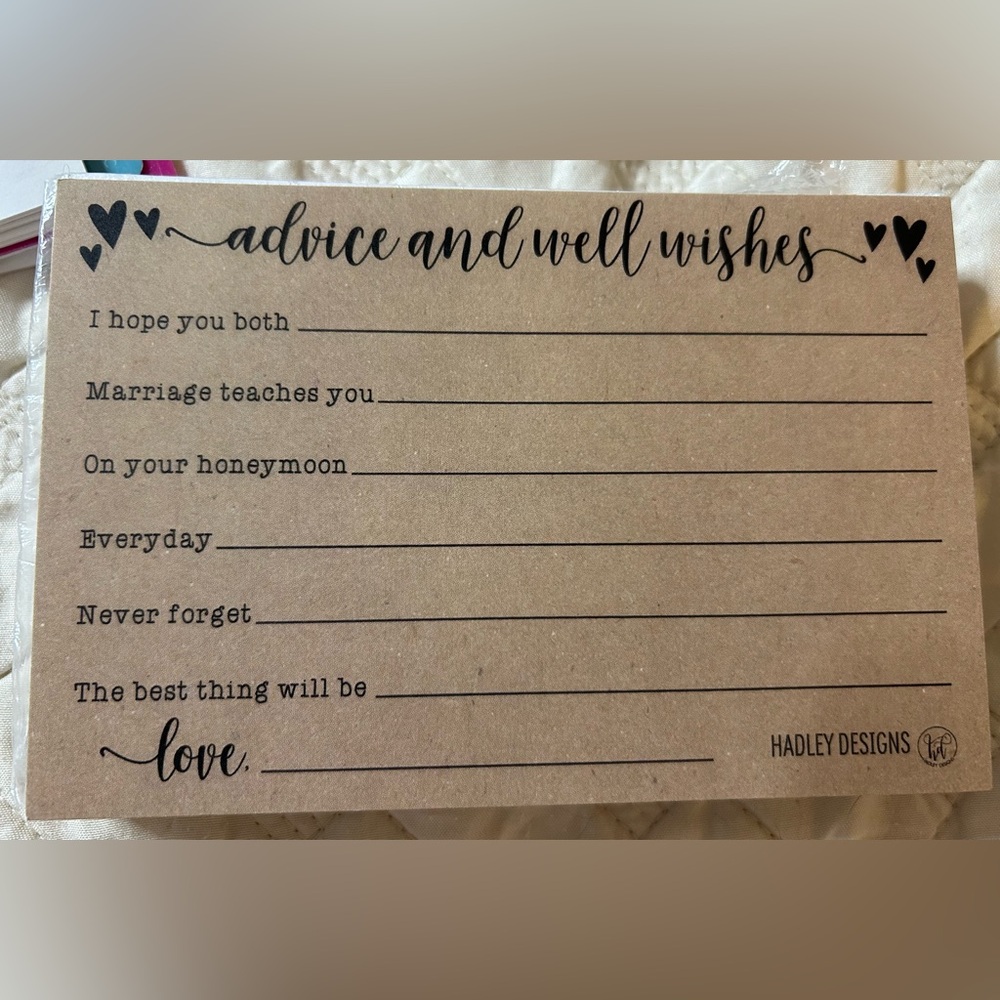 advice and well wishes
I hope you both
Marriage teaches you
On your honeymoon
Everyday
Never forget
The best thing will be
love,
HADLEY DESIGNS